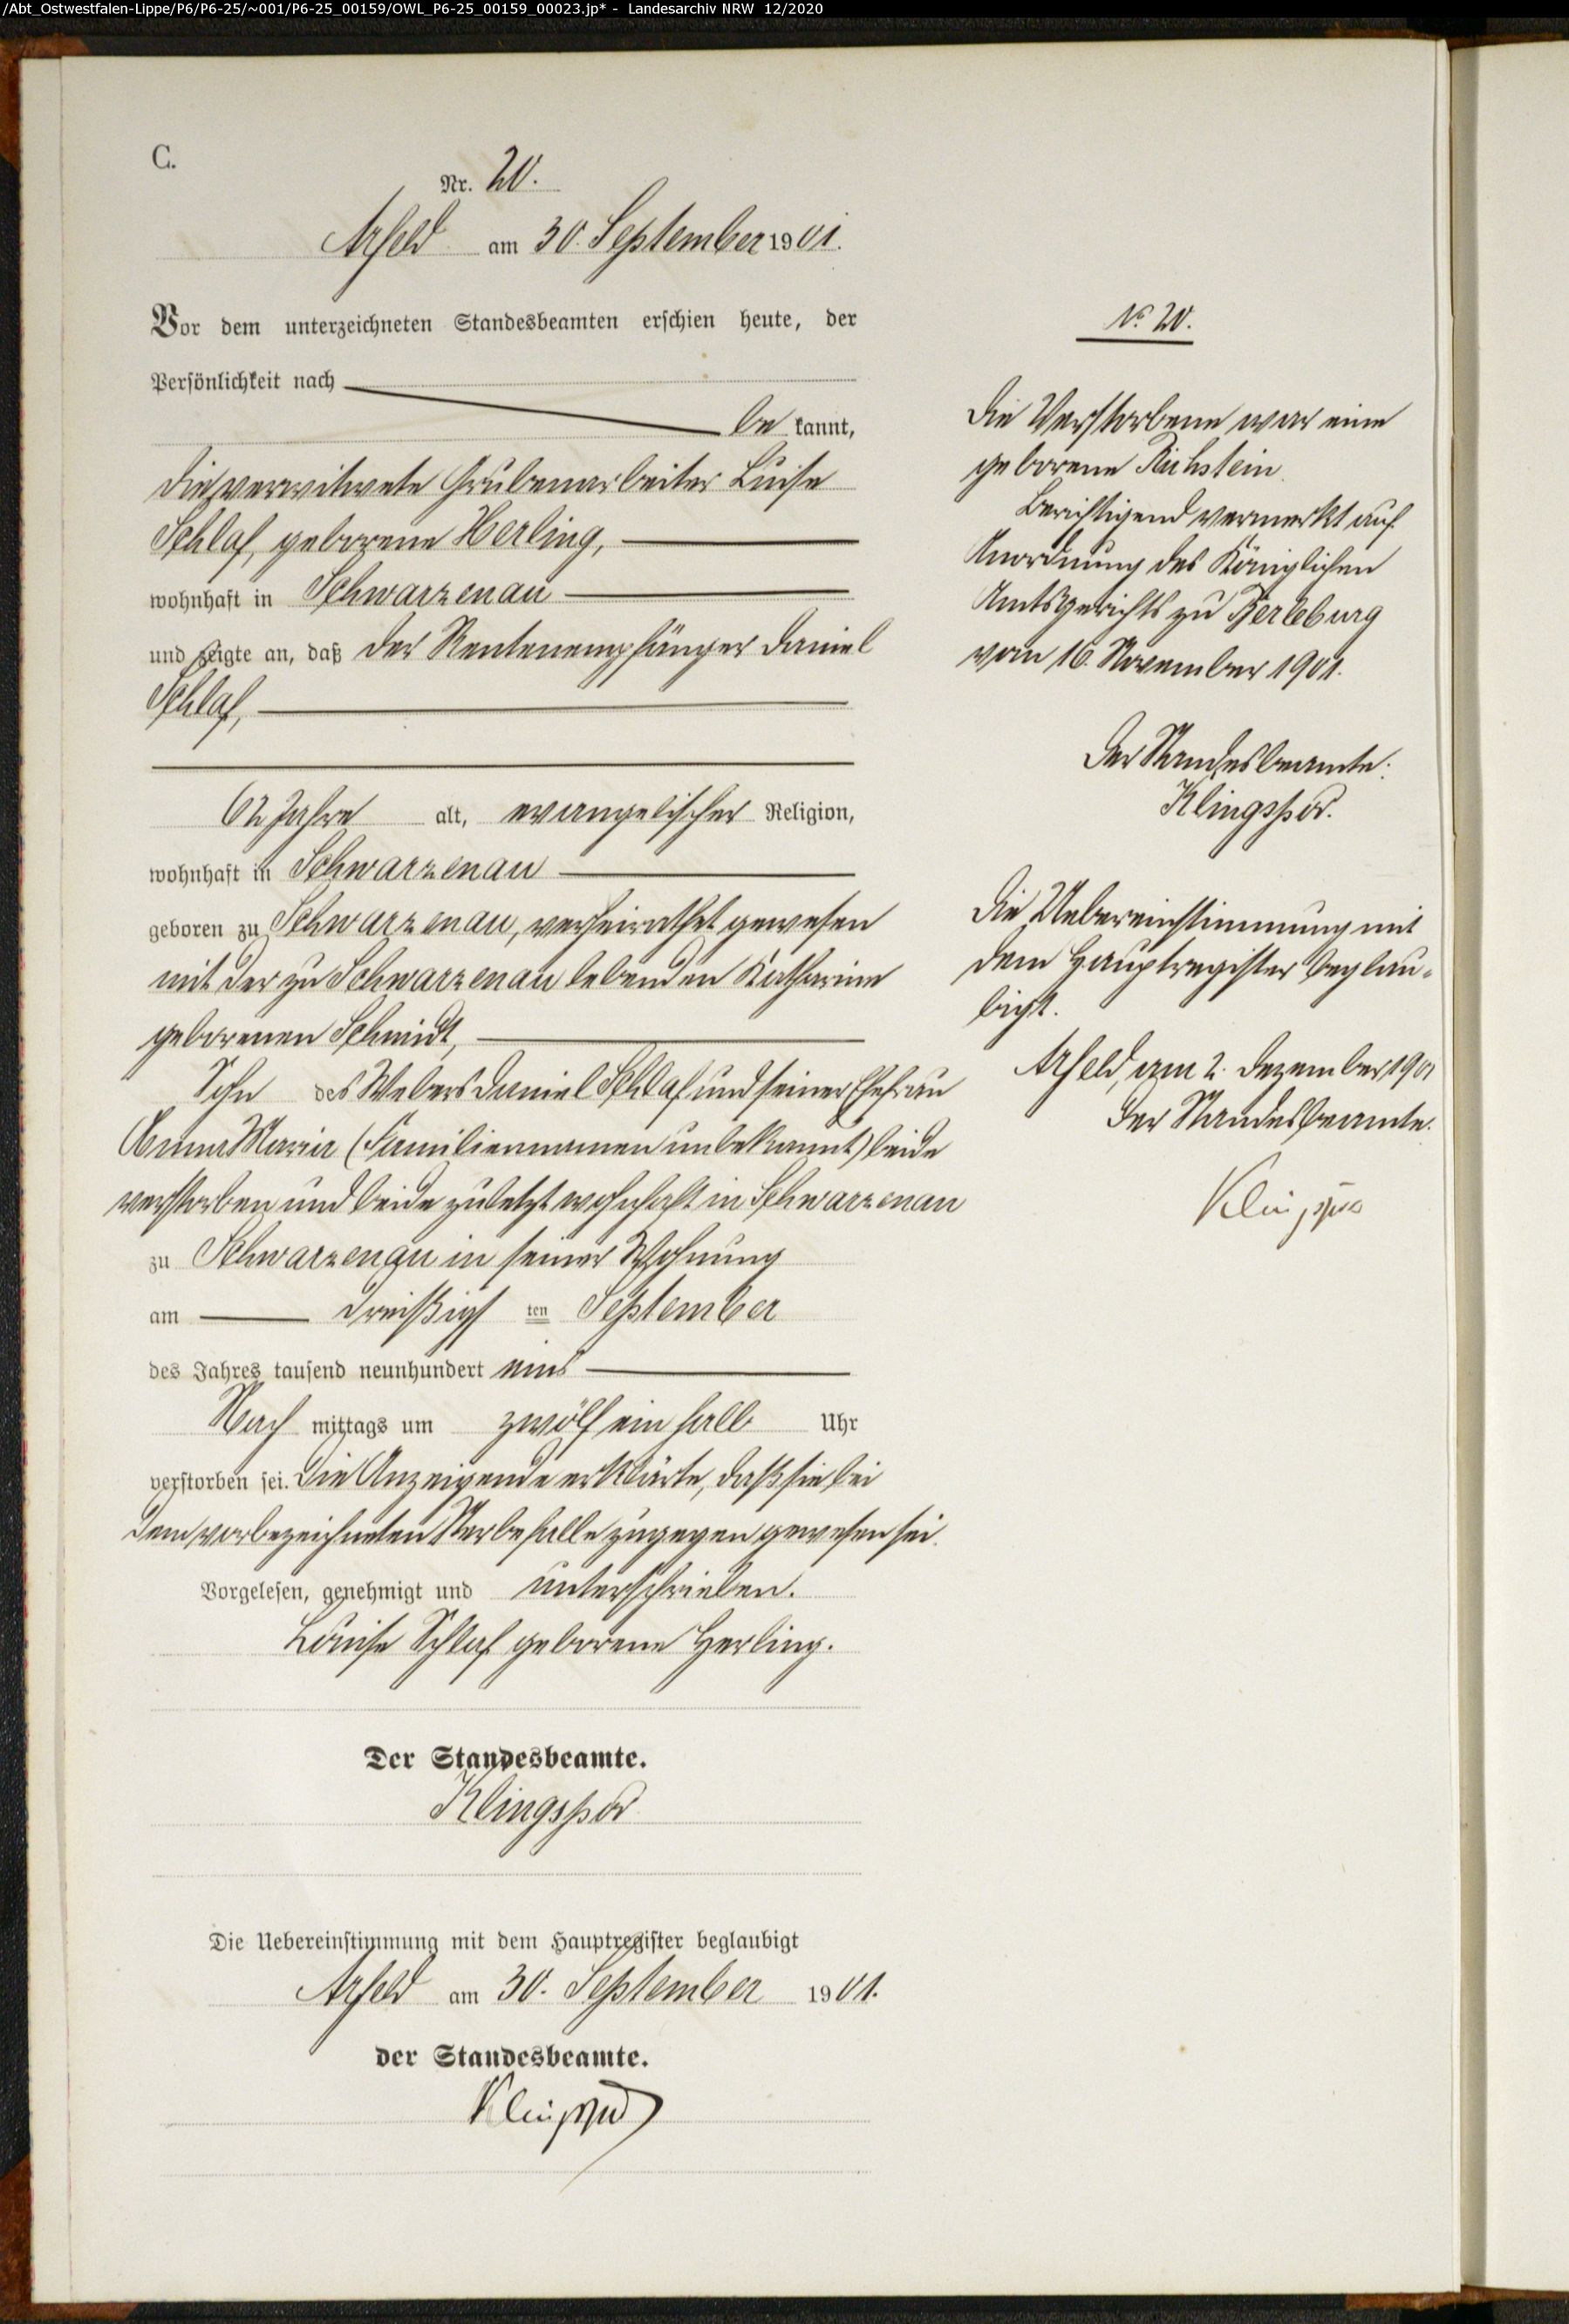 /Abt_Ostwestfalen-Lippe/P6/P6-25/~001/P6-25_00159/OWL_P6-25_00159_00023.jp* - Landesarchiv NRW 12/2020
C.
Nr. 20.
Arfeld am 30. September 1901.
Vor dem unterzeichneten Standesbeamten erschien heute, der
Persönlichkeit nach
bekannt,
die verwitwete Grubenarbeiter Luise
Schlaf, geborene Herling,
wohnhaft in Schwarzenau
und zeigte an, daß der Rentenempfänger Daniel
Schlaf,
62 Jahre alt, evangelischer Religion,
wohnhaft in Schwarzenau
geboren zu Schwarzenau, verheirathet gewesen
mit der zu Schwarzenau lebenden Katharine
geborenen Schmidt,
Sohn des Webers Daniel Schlaf und seiner Ehefrau
Anna Maria (Familiennamen unbekannt) beide
verstorben und beide zuletzt wohnhaft in Schwarzenau
zu Schwarzenau in seiner Wohnung
am dreißigsten September
des Jahres tausend neunhundert eins
Nachmittags um zwölf ein halb Uhr
verstorben sei. Die Anzeigende erklärte, daß sie bei
dem vorbezeichneten Sterbefalle zugegen gewesen sei.
Vorgelesen, genehmigt und unterschrieben.
Louise Schlaf geborene Herling.
Der Standesbeamte.
Klingspor
Die Uebereinstimmung mit dem Hauptregister beglaubigt
Arfeld am 30. September 1901.
der Standesbeamte.
Klingspor
No 20.
Die Verstorbene war eine
geborene Richstein.
Berichtigend vermerkt auf
Anordnung des Königlichen
Amtsgerichts zu Berleburg
vom 16. November 1901.
Der Standesbeamte:
Klingspor.
Die Uebereinstimmung mit
dem Hauptregister beglau-
bigt.
Arfeld, am 2. Dezember 1901
Der Standesbeamte.
Klingspor